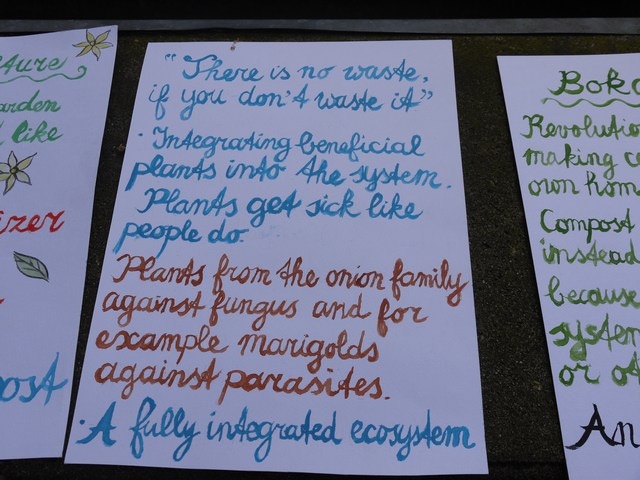 arden
like
izer
ost
"There is no waste,
if you don't waste it"
· Integrating beneficial
plants into the system.
Plants get sick like
people do.
Plants from the onion family
against fungus and for
example marigolds
against parasites.
· A fully integrated ecosystem
Revolutio
making c
own hom
Compost
instead
because
system
or ot
An